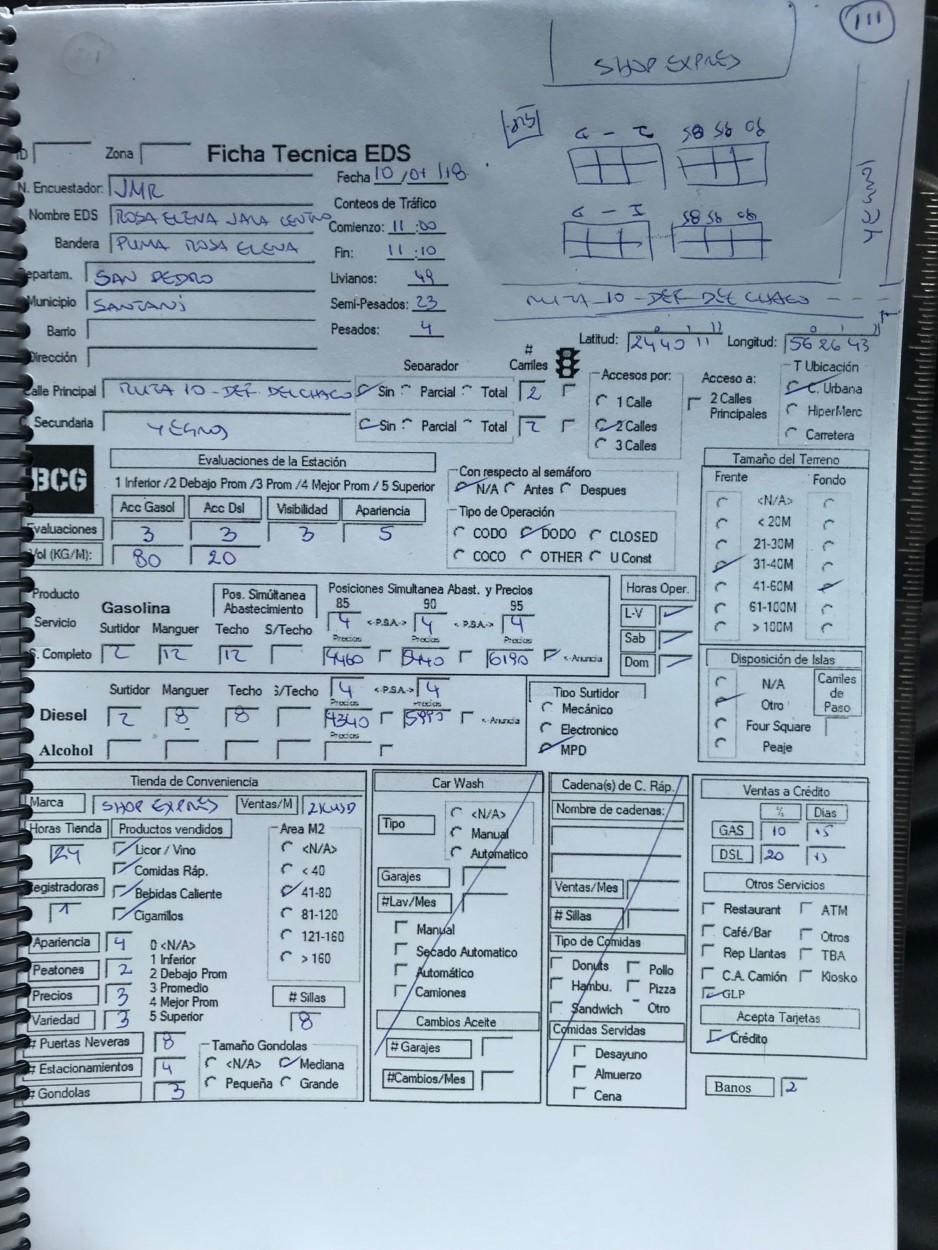 111
SHOP EXPRES
G - I 58 56 06
G - I 58 56 06
YEGROS
RUTA 10 - DEF. DEL CHACO
ID Zona Ficha Tecnica EDS
N. Encuestador: JMR Fecha 10 /01 /18
Conteos de Tráfico
Nombre EDS ROSA ELENA JARA CENTRO Comienzo: 11 :00
Bandera PUMA ROSA ELENA Fin: 11 :10
Departam. SAN PEDRO Livianos: 49
Municipio SANTANI Semi-Pesados: 23
Barrio Pesados: 4
Dirección
Latitud: 24 40 11 Longitud: 56 26 43
Separador # Carriles
Calle Principal RUTA 10 - DEF. DEL CHACO Sin Parcial Total 2
C. Secundaria YEGROS Sin Parcial Total 2
Accesos por:
1 Calle
2 Calles
3 Calles
Acceso a:
2 Calles
Principales
T Ubicación
C. Urbana
HiperMerc
Carretera
BCG
Evaluaciones de la Estación
1 Inferior /2 Debajo Prom /3 Prom /4 Mejor Prom / 5 Superior
Acc Gasol Acc Dsl Visibilidad Apariencia
Evaluaciones 3 3 3 5
Vol (KG/M): 80 20
Con respecto al semáforo
N/A Antes Despues
Tipo de Operación
CODO DODO CLOSED
COCO OTHER U Const
Tamaño del Terreno
Frente Fondo
<N/A>
< 20M
21-30M
31-40M
41-60M
61-100M
> 100M
Producto
Servicio
Gasolina
Pos. Simúltánea
Abastecimiento
Posiciones Simultanea Abast. y Precios
85 90 95
4 <-P.S.A.-> 4 <-P.S.A.-> 4
Surtidor Manguer Techo S/Techo Precios Precios Precios
S. Completo 2 12 12 4460 5440 6190 <-Anuncia
Horas Oper.
L-V
Sab
Dom
Surtidor Manguer Techo S/Techo 4 <-P.S.A.-> 4
Precios Precios
Diesel 2 8 8 4340 <-Anuncia
Precios
Alcohol
Tipo Surtidor
Mecánico
Electronico
MPD
Disposición de Islas
N/A
Otro
Four Square
Peaje
Carriles
de
Paso
Tienda de Conveniencia
Marca SHOP EXPRES Ventas/M 2K USD
Horas Tienda 24
Productos vendidos
Licor / Vino
Comidas Ráp.
Bebidas Caliente
Cigarrillos
Registradoras 1
Area M2
<N/A>
< 40
41-80
81-120
121-160
> 160
Apariencia 4
Peatones 2
Precios 3
Variedad 3
0 <N/A>
1 Inferior
2 Debajo Prom
3 Promedio
4 Mejor Prom
5 Superior
# Sillas
8
# Puertas Neveras 8
# Estacionamientos 4
# Gondolas 3
Tamaño Gondolas
<N/A> Mediana
Pequeña Grande
Car Wash
Tipo
<N/A>
Manual
Automatico
Garajes
#Lav/Mes
Manual
Secado Automatico
Automático
Camiones
Cambios Aceite
# Garajes
#Cambios/Mes
Cadena(s) de C. Ráp.
Nombre de cadenas:
Ventas/Mes
# Sillas
Tipo de Comidas
Donuts Pollo
Hambu. Pizza
Sandwich Otro
Comidas Servidas
Desayuno
Almuerzo
Cena
Ventas a Crédito
% Dias
GAS 10 15
DSL 20 15
Otros Servicios
Restaurant ATM
Café/Bar Otros
Rep Llantas TBA
C.A. Camión Kiosko
GLP
Acepta Tarjetas
Crédito
Banos 2